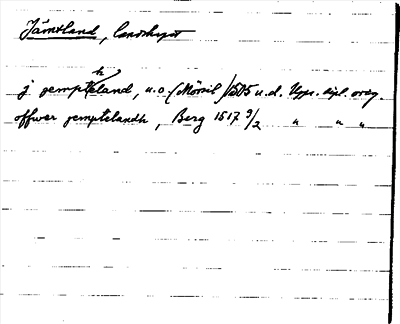 Jämtland, landskapet
j jempthland, u.o. (Mörsil) 1505 u.d. Upps. dipl. orig.
offwer jemptelandh, Berg 1517 9/2 " " "